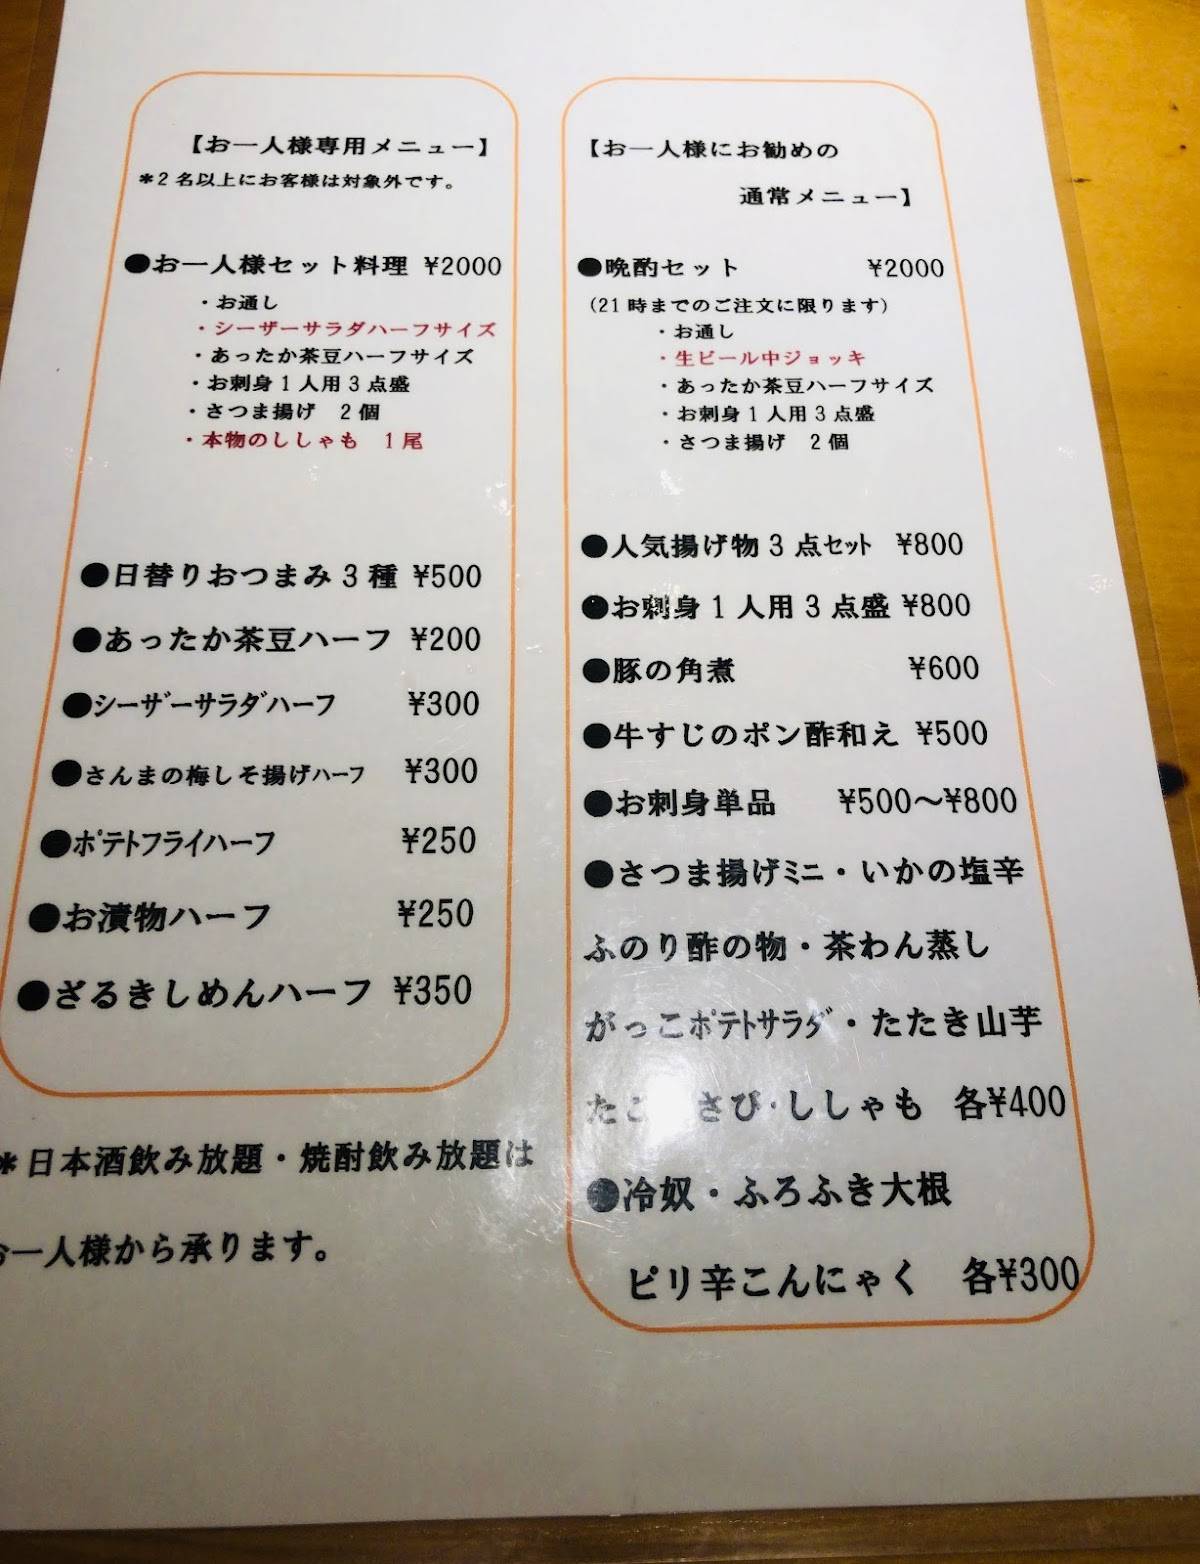 【お一人様専用メニュー】
＊2名以上にお客様は対象外です。
●お一人様セット料理 ¥2000
・お通し
・シーザーサラダハーフサイズ
・あったか茶豆ハーフサイズ
・お刺身1人用3点盛
・さつま揚げ 2個
・本物のししゃも 1尾
●日替りおつまみ3種 ¥500
●あったか茶豆ハーフ ¥200
●シーザーサラダハーフ ¥300
●さんまの梅しそ揚げハーフ ¥300
●ポテトフライハーフ ¥250
●お漬物ハーフ ¥250
●ざるきしめんハーフ ¥350
＊日本酒飲み放題・焼酎飲み放題は
お一人様から承ります。
【お一人様にお勧めの
通常メニュー】
●晩酌セット ¥2000
(21時までのご注文に限ります)
・お通し
・生ビール中ジョッキ
・あったか茶豆ハーフサイズ
・お刺身1人用3点盛
・さつま揚げ 2個
●人気揚げ物3点セット ¥800
●お刺身1人用3点盛 ¥800
●豚の角煮 ¥600
●牛すじのポン酢和え ¥500
●お刺身単品 ¥500～¥800
●さつま揚げミニ・いかの塩辛
ふのり酢の物・茶わん蒸し
がっこポテトサラダ・たたき山芋
さび・ししゃも 各¥400
●冷奴・ふろふき大根
ピリ辛こんにゃく 各¥300